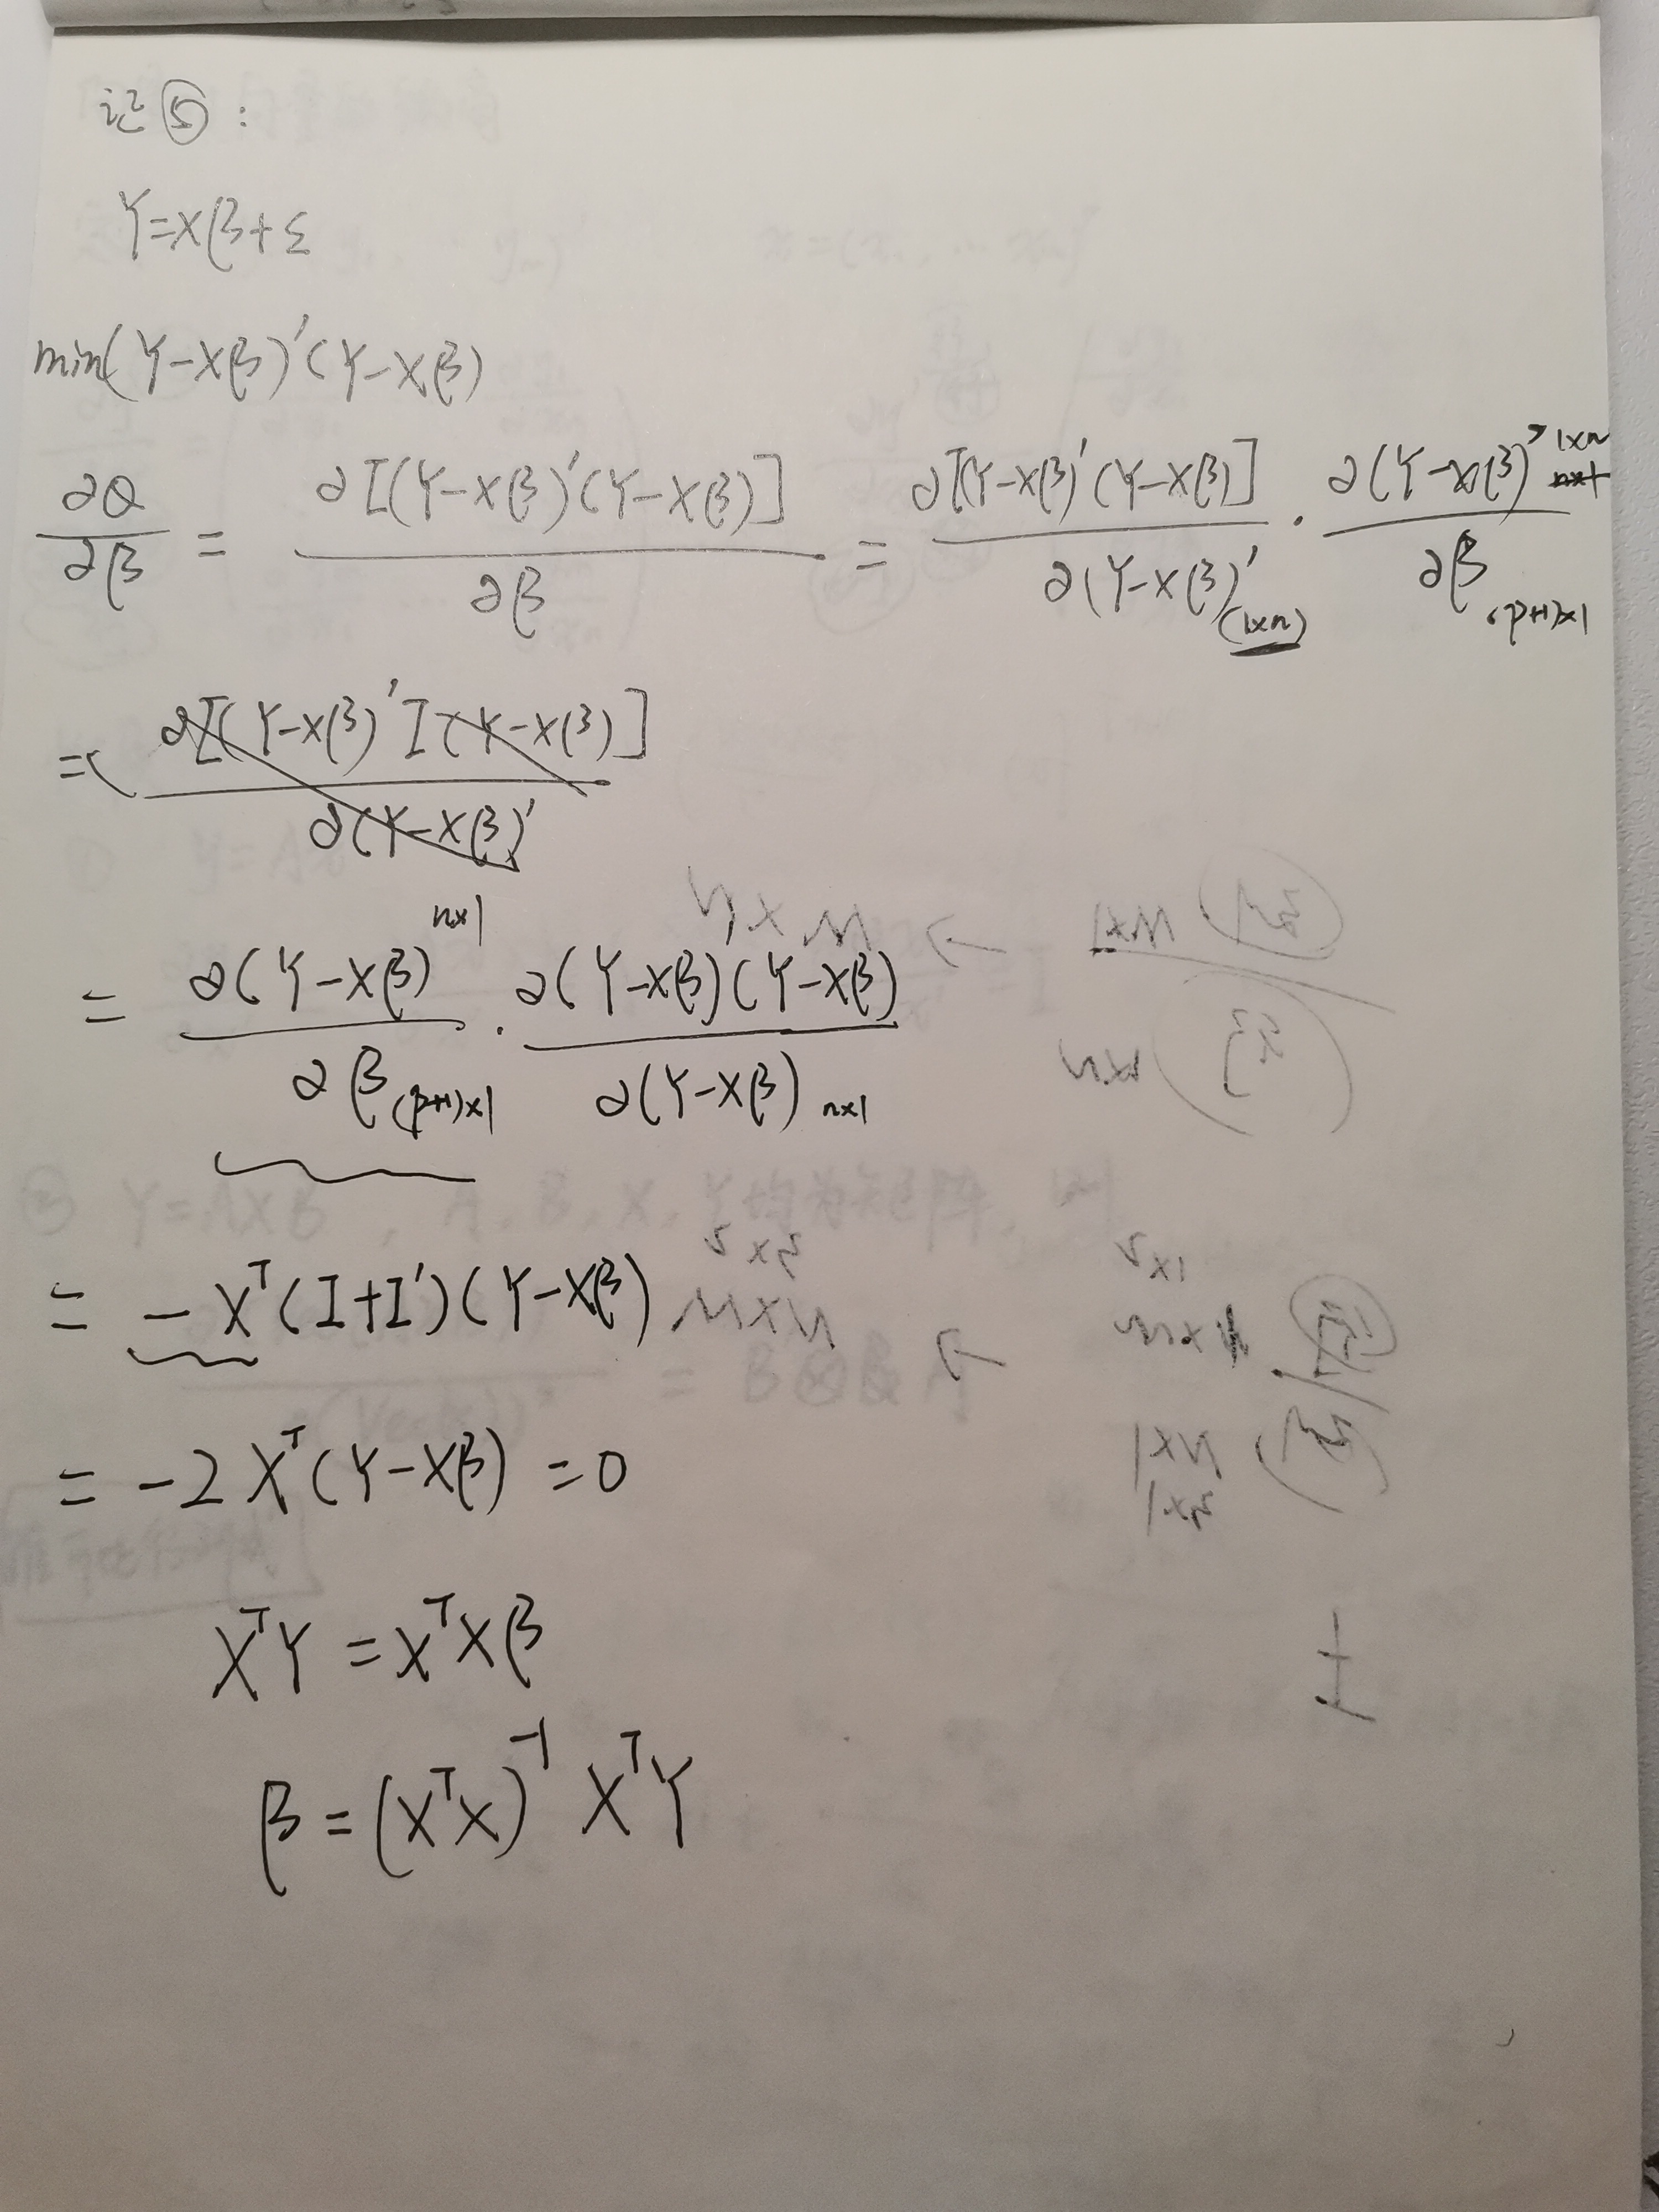 记⑤:
Y=Xβ+ε
min(Y-Xβ)'(Y-Xβ)
∂Q/∂β = ∂[(Y-Xβ)'(Y-Xβ)]/∂β = ∂[(Y-Xβ)'(Y-Xβ)]/∂(Y-Xβ)'(1×n) · ∂(Y-Xβ)' 1×n/∂β (p+1)×1
= ∂[(Y-Xβ)'I(Y-Xβ)]/∂(Y-Xβ)'
= ∂(Y-Xβ) n×1/∂β (p+1)×1 · ∂(Y-Xβ)'(Y-Xβ)/∂(Y-Xβ) n×1
= -Xᵀ(I+I')(Y-Xβ)
= -2Xᵀ(Y-Xβ) = 0
XᵀY = XᵀXβ
β = (XᵀX)⁻¹XᵀY